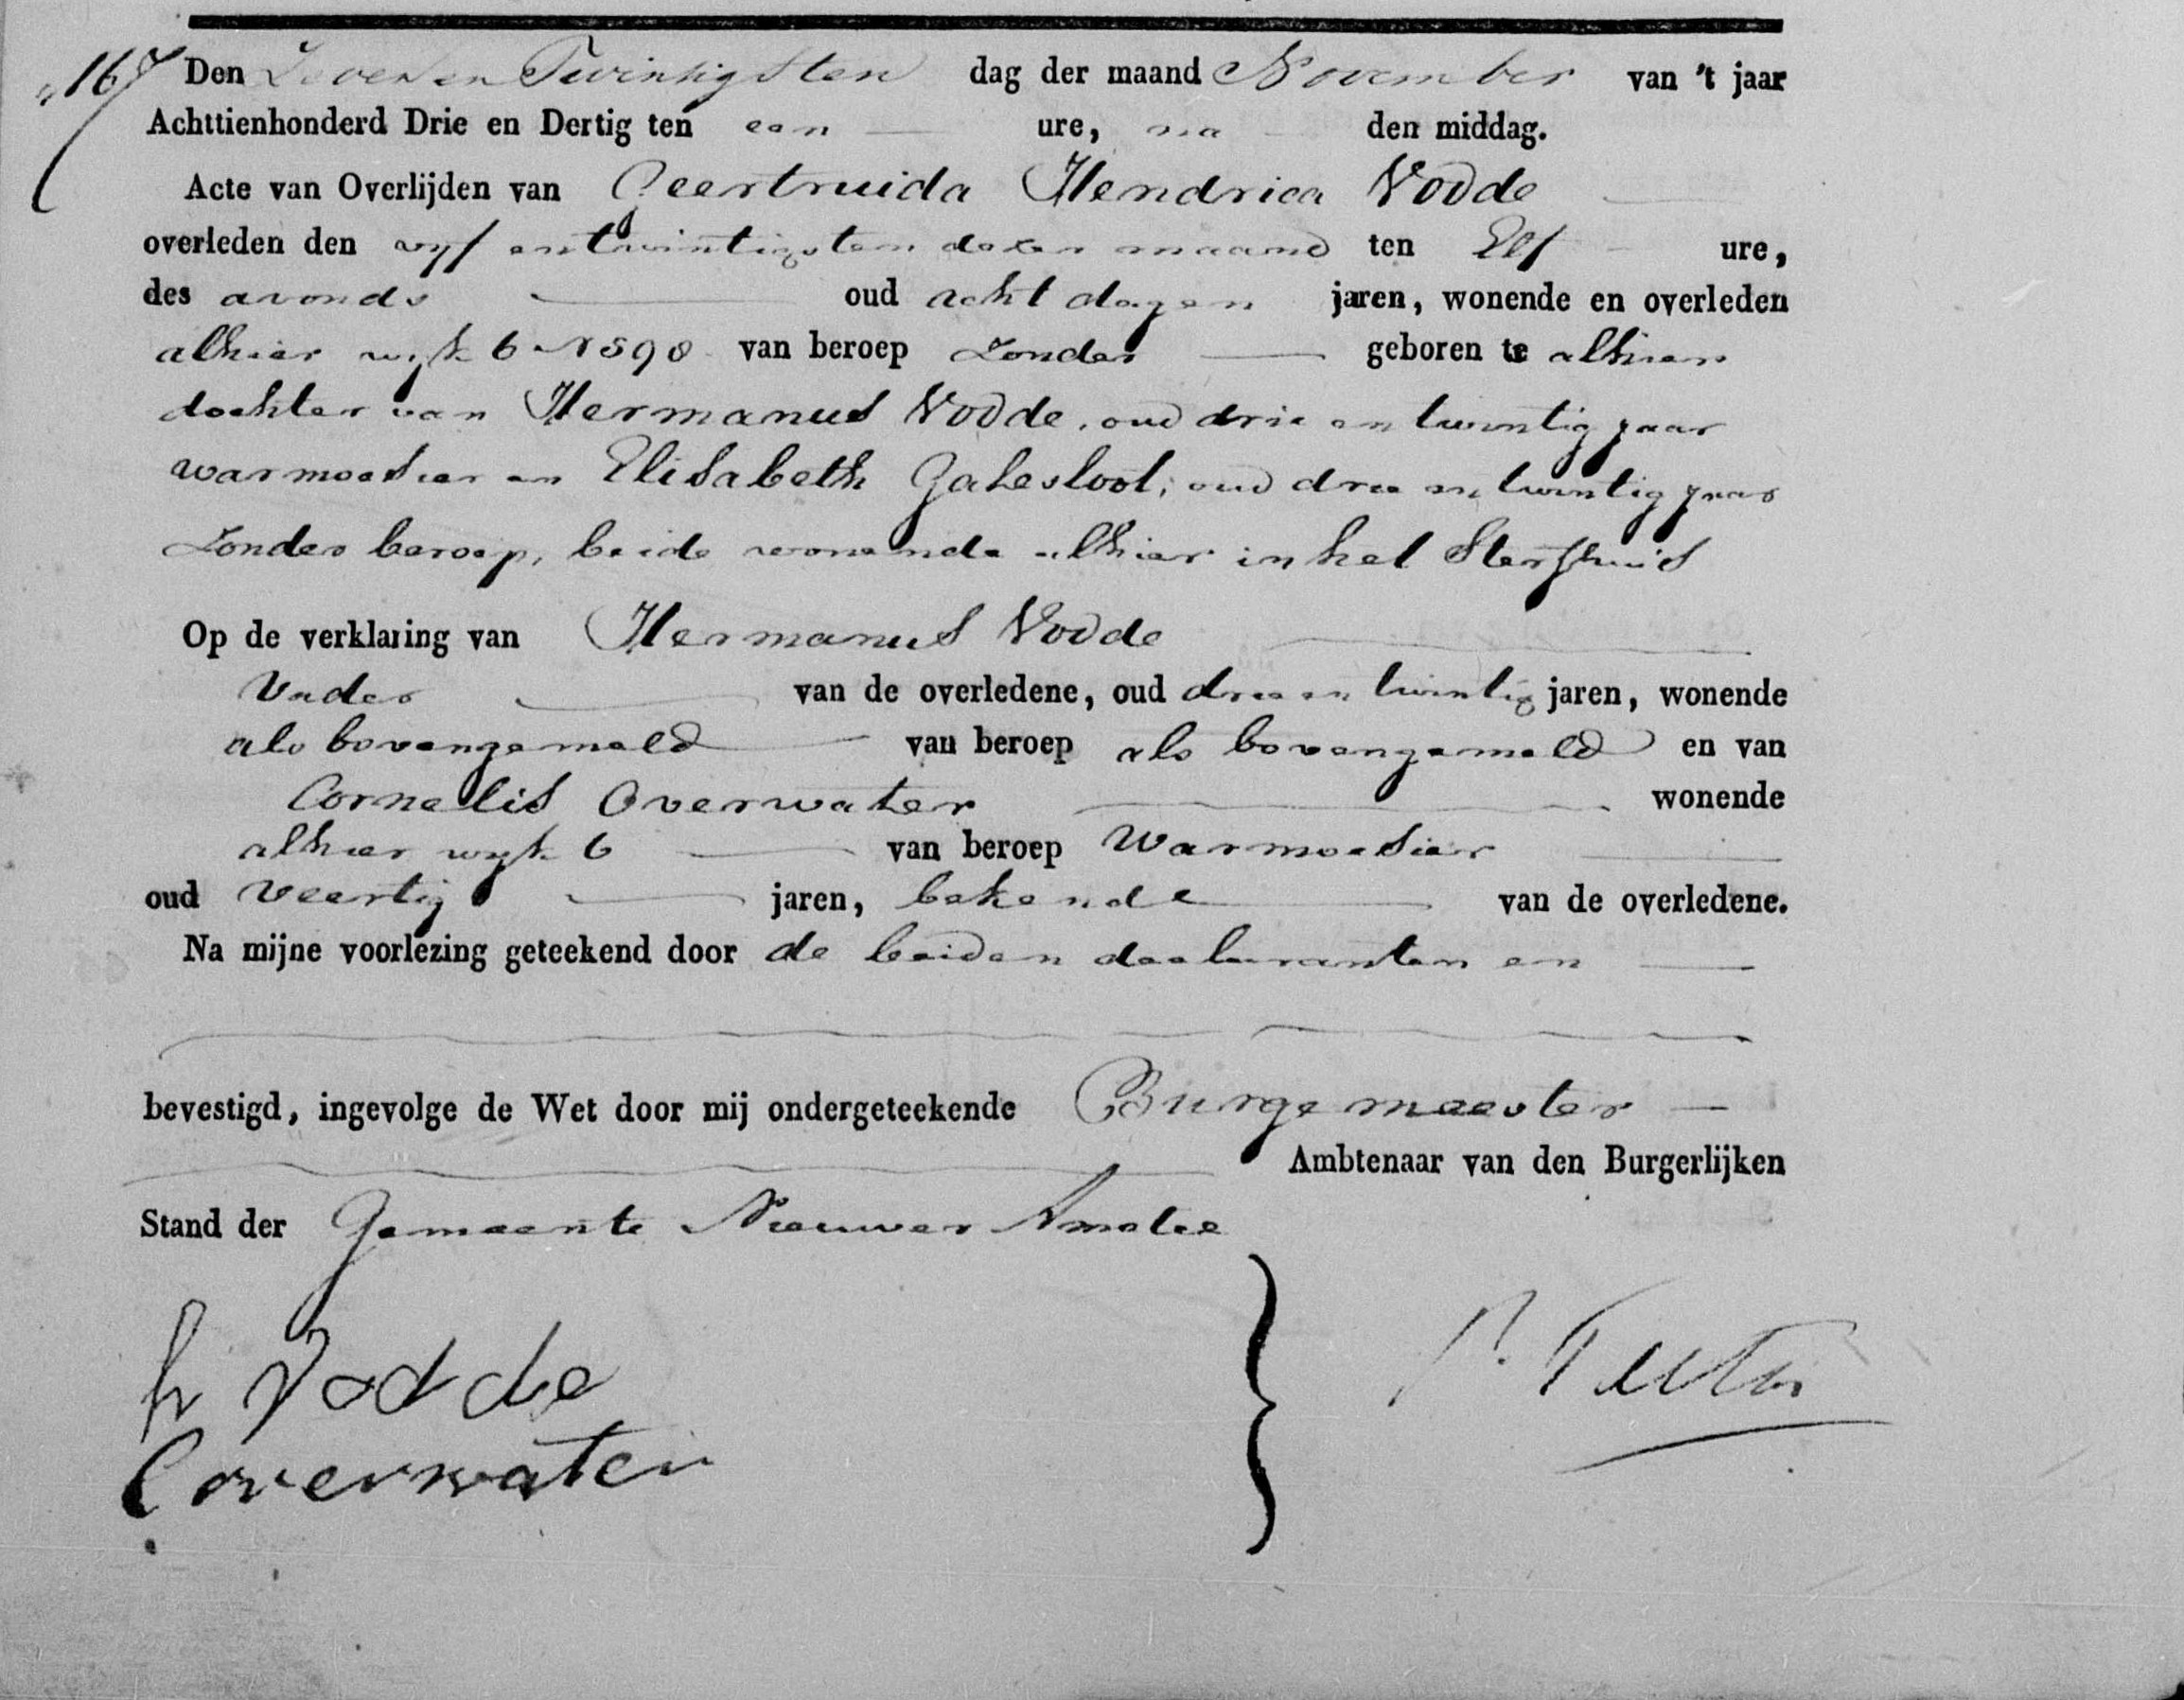 167 Den Zeven en Twintigsten dag der maand November van 't jaar
Achttienhonderd Drie en Dertig ten een ure, na den middag.
Acte van Overlijden van Geertruida Hendrica Vodde
overleden den vyf en twintigsten dezer maand ten Elf ure,
des avonds oud acht dagen jaren, wonende en overleden
alhier wyk 6 N 598 van beroep Zonder geboren te alhier
dochter van Hermanus Vodde, oud drie en twintig jaar
warmoesier en Elisabeth oud drie en twintig jaar
Zonder beroep, beide wonende alhier in het Sterfhuis
Op de verklaring van Hermanus Vodde
Vader van de overledene, oud drie en twintig jaren, wonende
als bovengemeld van beroep als bovengemeld en van
Cornelis Overwater wonende
alhier wyk 6 van beroep Warmoesier
oud Veertig jaren, bekende van de overledene.
Na mijne voorlezing geteekend door de beiden declaranten en
bevestigd, ingevolge de Wet door mij ondergeteekende Burgemeester
Ambtenaar van den Burgerlijken
Stand der Gemeente Nieuwer Amstel
h Vodde
C overwater